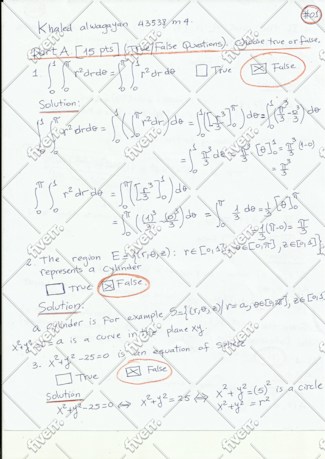 #01
Khaled alwagayan 43538 m 4.
Part A [15 pts] (True/False Questions). Choose true or false.
1 ∫₀¹ ∫₀^π r² dr dθ = ∫₀^π ∫₀¹ r² dr dθ □ True ☒ False
Solution:
∫₀¹ ∫₀^π r² dr dθ = ∫₀¹ (∫₀^π r² dr) dθ = ∫₀¹ [r³/3]₀^π dθ = ∫₀¹ (π³/3 - 0³/3) dθ
= ∫₀¹ π³/3 dθ = π³/3 [θ]₀¹ = π³/3 (1-0)
= π³/3
∫₀^π ∫₀¹ r² dr dθ = ∫₀^π [r³/3]₀¹ dθ
= ∫₀^π (1)³/3 - (0)³/3 dθ = ∫₀^π 1/3 dθ = 1/3 [θ]₀^π
= 1/3 (π-0) = π/3
2 The region E = {(r,θ,z): r∈[0,1], θ∈[0,π], z∈[0,1]}
represents a cylinder
□ True ☒ False
Solution:
a cylinder is for example, S={(r,θ,z)/r=a,
x²+y²=a is a curve in the plane xy
3. x²+y²-25=0 is an equation of sphere
□ True ☒ False
Solution
x²+y²-25=0 ⇔ x²+y²=25 ⇔ x²+y²=(5)² is a circle
x²+y²=r²
fiverr.